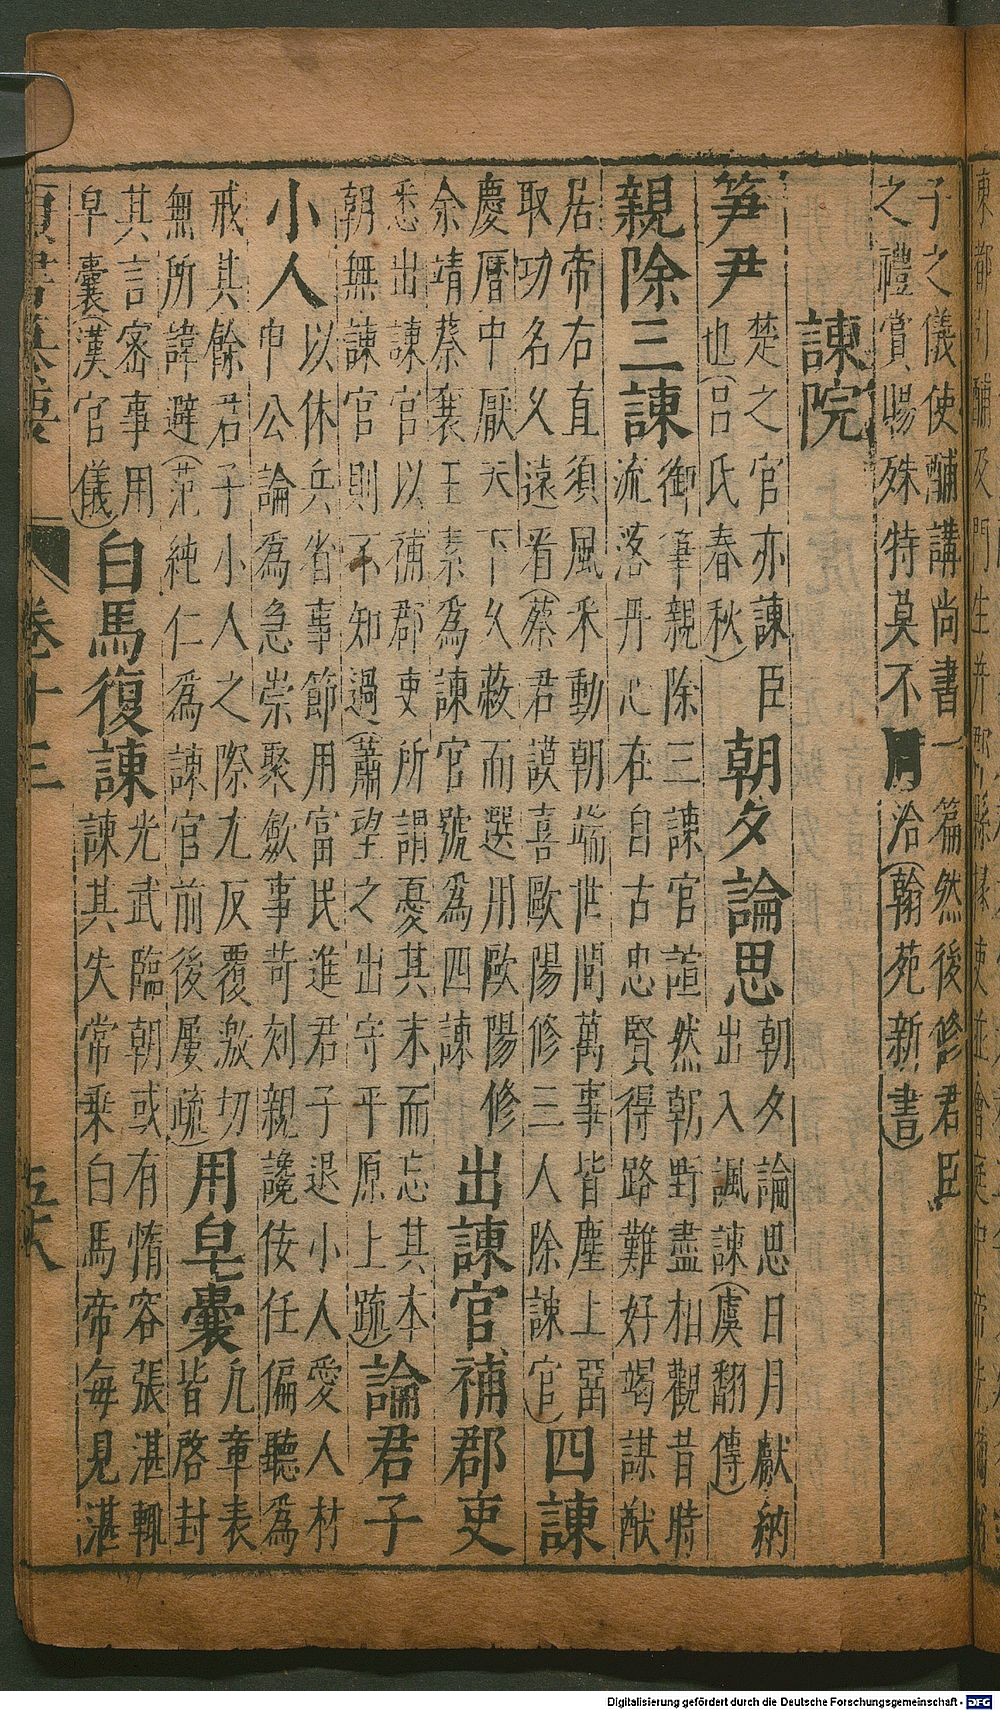 子之儀使酺講尚書一篇然後修君臣
之禮賞賜殊特莫不洽(翰苑新書)
諫院
笋尹
楚之官亦諫臣
也(呂氏春秋)
朝夕論思
朝夕論思日月獻納
出入諷諫(虞翻傳)
親除三諫
御筆親除三諫官諠然朝野盡相觀昔時
流落丹心在自古忠賢得路難好竭謀猷
居帝右直須風采動朝端世間萬事皆塵土留
取功名久遠看(蔡君謨喜歐陽修三人除諫官)
四諫
慶曆中厭天下久蔽而選用歐陽修
余靖蔡襄王素為諫官號為四諫
出諫官補郡吏
悉出諫官以補郡吏所謂憂其末而忘其本
朝無諫官則不知過(蕭望之出守平原上疏)
論君子
小人
以休兵省事節用富民進君子退小人愛人材
申公論為急崇聚斂事苛刻親讒佞任偏聽為
戒其餘君子小人之際尤反覆激切
無所諱避(范純仁為諫官前後屢疏)
用皂囊
凡章表
皆啓封
其言密事用
皁囊(漢官儀)
白馬復諫
光武臨朝或有惰容張湛輒
諫其失常乘白馬帝每見湛
卷十三
Digitalisierung gefördert durch die Deutsche Forschungsgemeinschaft - DFG